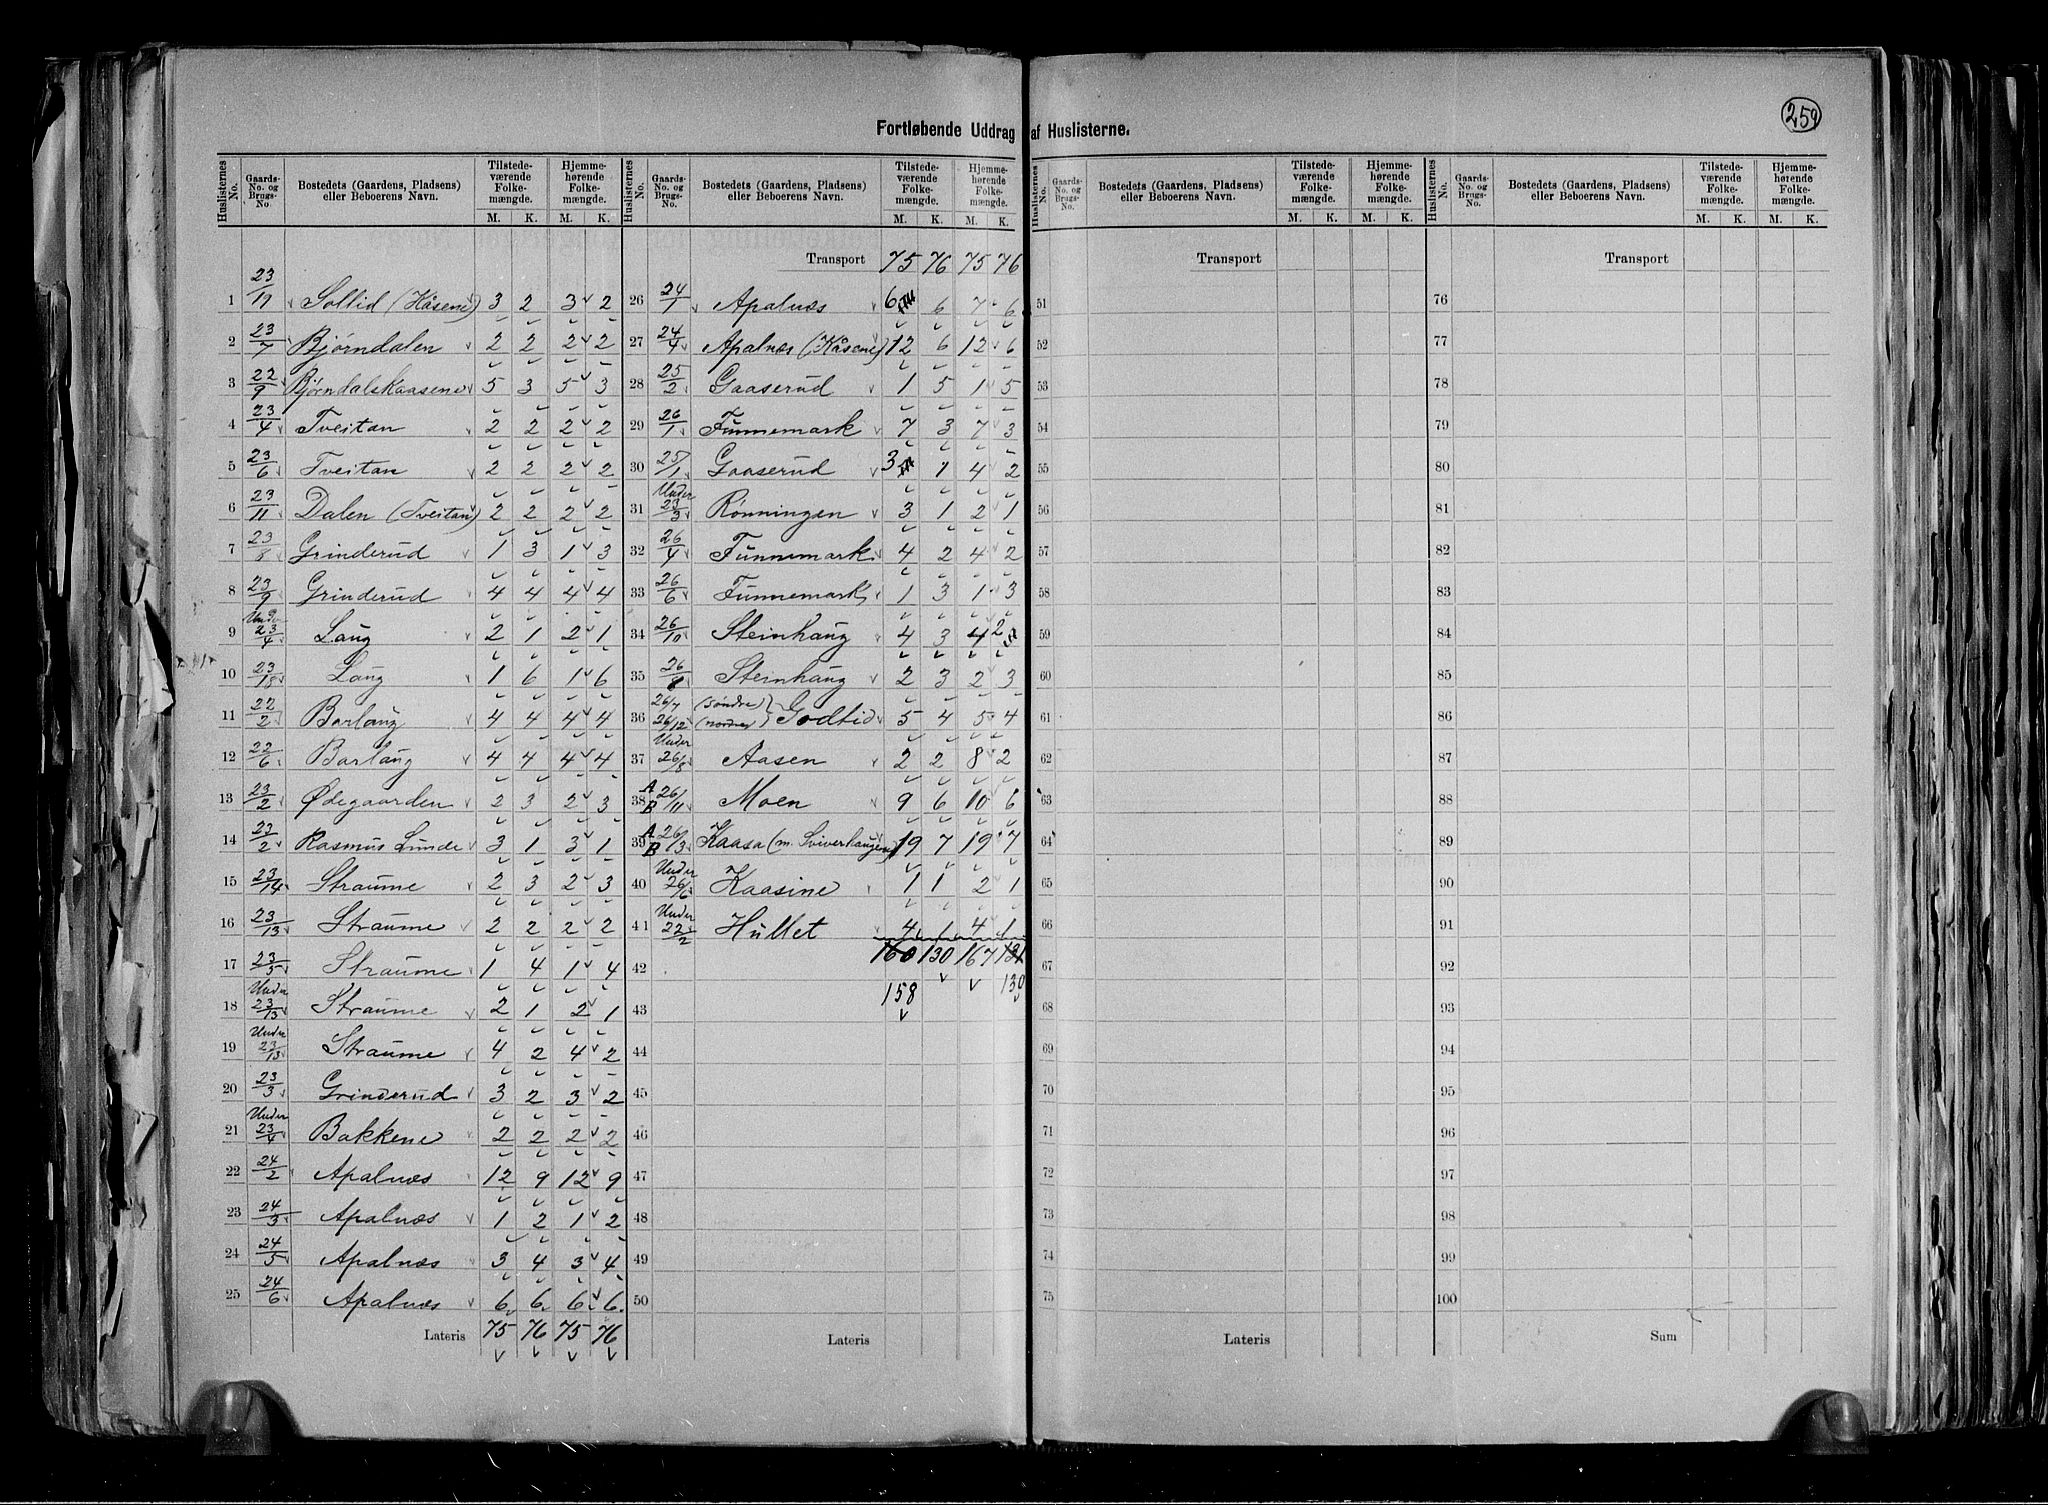 259
Fortløbende Uddrag af Huslisterne.
Huslisternes No. | Gaards-No. og Brugs-No. | Bostedets (Gaardens, Pladsens) eller Beboerens Navn. | Tilstedeværende Folkemængde. M. K. | Hjemmehørende Folkemængde. M. K.
1 23/19 Sollid (Kåsene) 3 2 3 2
2 23/7 Bjørndalen 2 2 2 2
3 22/9 Bjørndalskaasene 5 3 5 3
4 23/4 Tveitan 2 2 2 2
5 23/6 Tveitan 2 2 2 2
6 23/11 Dalen (Tveitan) 2 2 2 2
7 23/8 Grinderud 1 3 1 3
8 23/9 Grinderud 4 4 4 4
9 Under 23/4 Laug 2 1 2 1
10 23/18 Laug 1 6 1 6
11 22/2 Borlaug 4 4 4 4
12 22/6 Borlaug 4 4 4 4
13 23/2 Ødegaarden 2 3 2 3
14 23/2 Rasmus Lunde 3 1 3 1
15 23/14 Straume 2 3 2 3
16 23/13 Straume 2 2 2 2
17 23/5 Straume 1 4 1 4
18 Under 23/13 Straume 2 1 2 1
19 Under 23/13 Straume 4 2 4 2
20 23/3 Grinderud 3 2 3 2
21 Under 23/4 Bakkene 2 2 2 2
22 24/2 Apalnæs 12 9 12 9
23 24/3 Apalnæs 1 2 1 2
24 24/5 Apalnæs 3 4 3 4
25 24/6 Apalnæs 6 6 6 6
Lateris 75 76 75 76
Huslisternes No. | Gaards-No. og Brugs-No. | Bostedets (Gaardens, Pladsens) eller Beboerens Navn. | Tilstedeværende Folkemængde. M. K. | Hjemmehørende Folkemængde. M. K.
Transport 75 76 75 76
26 24/1 Apalnæs 6 6 7 6
27 24/4 Apalnæs (Kåsene) 12 6 12 6
28 25/2 Gaaserud 1 5 1 5
29 26/1 Funnemark 7 3 7 3
30 25/1 Gaaserud 3 1 4 2
31 Under 23/3 Rønningen 3 1 2 1
32 26/4 Funnemark 4 2 4 2
33 26/6 Funnemark 1 3 1 3
34 26/10 Steinhaug 4 3 4 2
35 26/8 Steinhaug 2 3 2 3
36 26/7 (søndre) 26/12 (nordre) } Godtid 5 4 5 4
37 Under 26/8 Aasen 2 2 8 2
38 A B 26/11 Moen 9 6 10 6
39 A B 26/3 Kaasa (m. Sviverhaugen) 19 7 19 7
40 Under 26/6 Kaasine 1 1 2 1
41 Under 22/2 Hullet 4 1 4 1
42 160 130 167 131
43 158 130
44
45
46
47
48
49
50
Lateris
Huslisternes No. | Gaards-No. og Brugs-No. | Bostedets (Gaardens, Pladsens) eller Beboerens Navn. | Tilstedeværende Folkemængde. M. K. | Hjemmehørende Folkemængde. M. K.
Transport
51
52
53
54
55
56
57
58
59
60
61
62
63
64
65
66
67
68
69
70
71
72
73
74
75
Lateris
Huslisternes No. | Gaards-No. og Brugs-No. | Bostedets (Gaardens, Pladsens) eller Beboerens Navn. | Tilstedeværende Folkemængde. M. K. | Hjemmehørende Folkemængde. M. K.
Transport
76
77
78
79
80
81
82
83
84
85
86
87
88
89
90
91
92
93
94
95
96
97
98
99
100
Sum